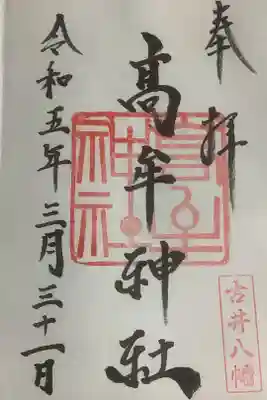 奉拝
高牟神社
令和五年三月三十一日
高牟神社
古井八幡